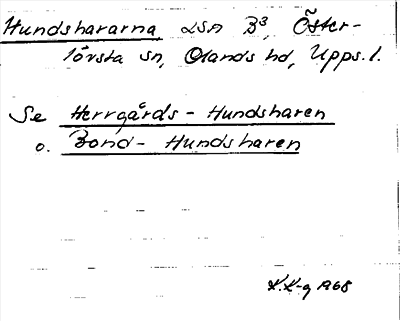 Hundshararna LSA B³, Öster-
lövsta sn, Olands hd, Upps. l.
Se Herrgårds- Hundsharen
o. Bond- Hundsharen
K.K-g 1968